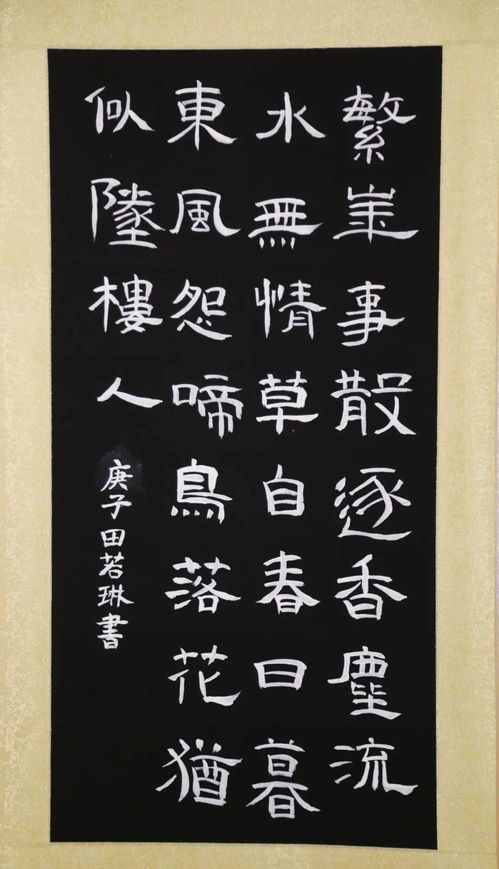 繁華事散逐香塵流
水無情草自春日暮
東風怨啼鳥落花猶
似墜樓人
庚子田若琳書